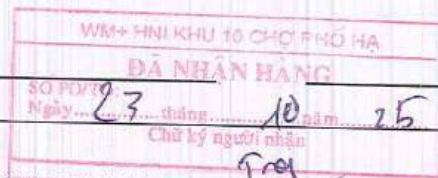 WM+ HNI KHU 10 CHỢ PHỐ HẠ
ĐÃ NHẬN HÀNG
SỐ PO/
Ngày 23 tháng 10 năm 25
Chữ ký người nhận